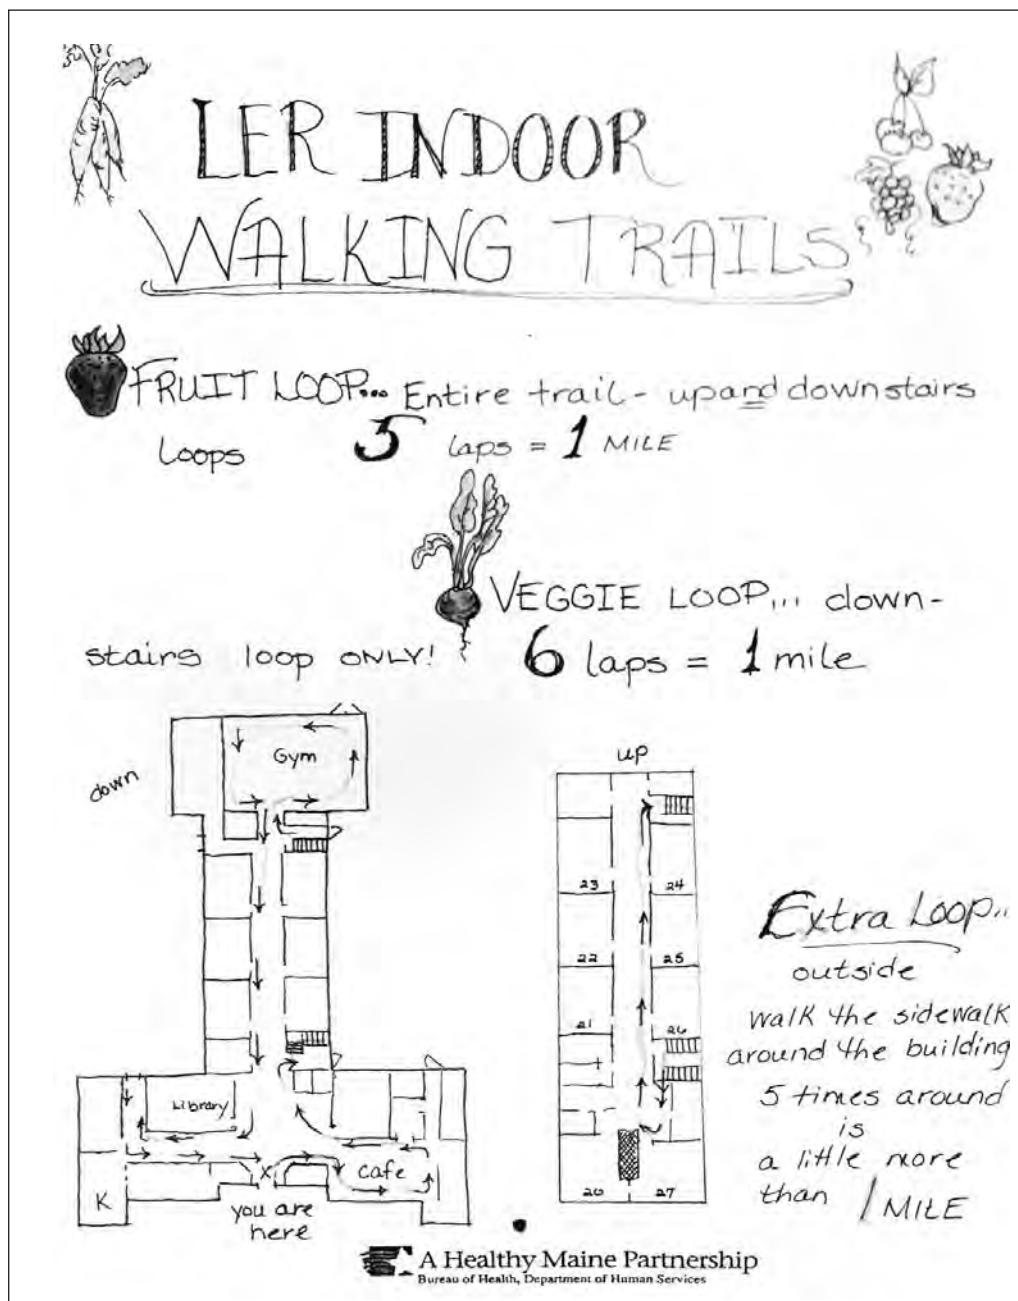 LER INDOOR
WALKING TRAILS
FRUIT LOOP... Entire trail - up and down stairs
Loops 5 laps = 1 MILE
VEGGIE LOOP... down-
stairs loop ONLY! 6 laps = 1 mile
down
Gym
Library
K
X
Cafe
you are
here
up
23 24
22 25
21 26
20 27
Extra Loop...
outside
walk the sidewalk
around the building
5 times around
is
a little more
than 1 MILE
A Healthy Maine Partnership
Bureau of Health, Department of Human Services